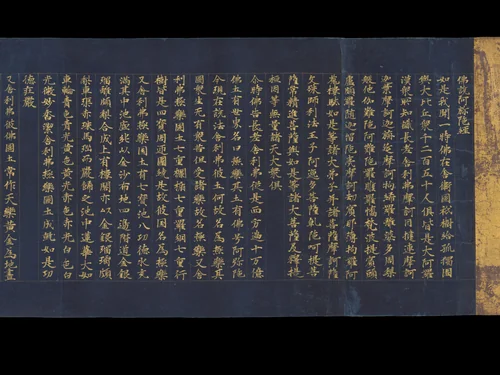 佛説阿弥陀經
如是我聞一時佛在舎衞國祇樹給孤獨園
與大比丘衆千二百五十人俱皆是大阿羅
漢衆所知識長老舎利弗摩訶目揵連摩訶
迦葉摩訶迦旃延摩訶拘絺羅離婆多周梨
槃他伽難陀阿難陀羅睺羅憍梵波提賓頭
盧頗羅墮迦留陀夷摩訶劫賓那薄拘羅阿
㝹樓馱如是等諸大弟子并諸菩薩摩訶薩
文殊師利法王子阿逸多菩薩乾陀訶提菩
薩常精進菩薩與如是等諸大菩薩及釋提
桓因等無量諸天大衆俱
尒時佛告長老舎利弗從是西方過十万億
佛土有世界名曰極樂其土有佛号阿弥陀
今現在説法舎利弗彼土何故名為極樂其
國衆生无有衆苦但受諸樂故名極樂又舎
利弗極樂國土七重欄楯七重羅網七重行
樹皆是四寶周迊圍繞是故彼國名曰極樂
又舎利弗極樂國土有七寶池八功徳水充
滿其中池底純以金沙布地四邊階道金銀
瑠璃頗梨合成上有樓閣亦以金銀瑠璃頗
梨車璖赤珠馬瑙而嚴飾之池中蓮華大如
車輪青色青光黄色黄光赤色赤光白色白
光微妙香潔舎利弗極樂國土成就如是功
徳莊嚴
又舎利弗彼佛國土常作天樂黄金為地晝